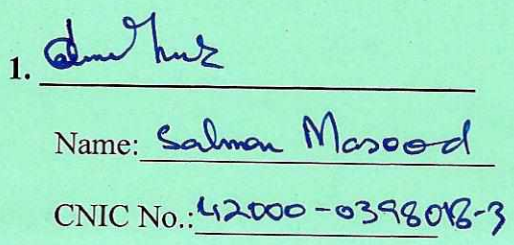 1.
Name: Salman Masood
CNIC No.: 42000-0398018-3